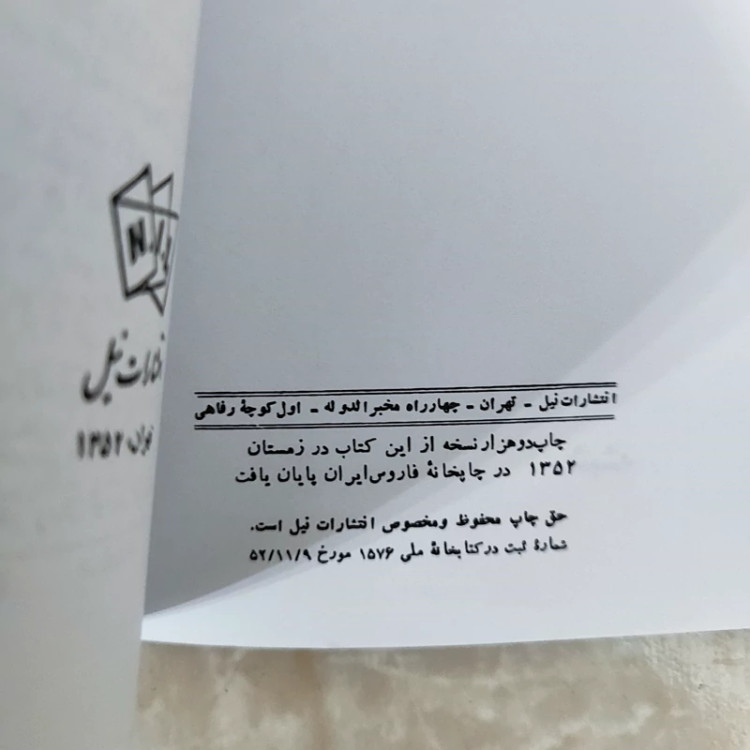 انتشارات نیل - تهران - چهارراه مخبرالدوله - اول کوچهٔ رفاهی
چاپ دوهزار نسخه از این کتاب در زمستان
۱۳۵۲ در چاپخانهٔ فاروس ایران پایان یافت
حق چاپ محفوظ و مخصوص انتشارات نیل است.
شمارهٔ ثبت در کتابخانهٔ ملی ۱۵۷۶ مورخ ۵۲/۱۱/۹
N.I.L
انتشارات نیل
تهران، ۱۳۵۲